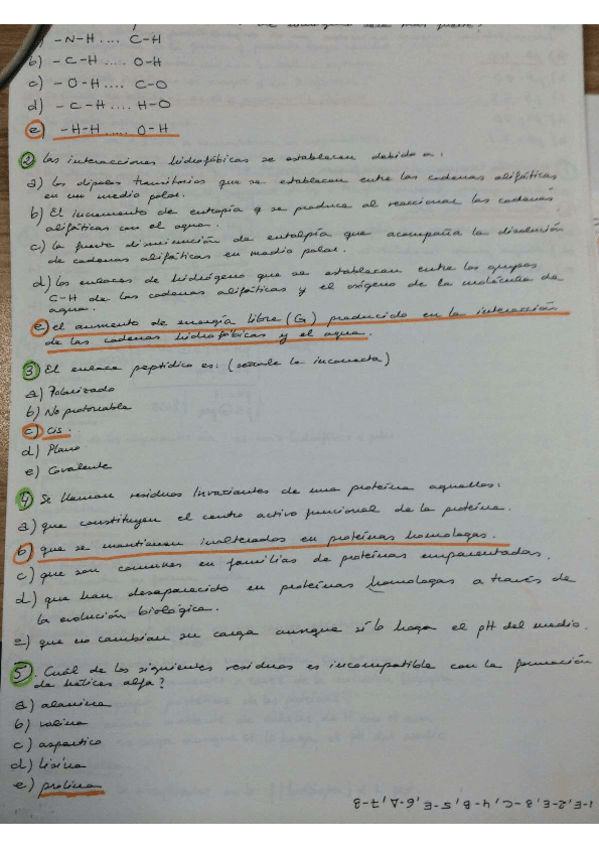 a) -N-H .... C-H
b) -C-H .... O-H
c) -O-H .... C-O
d) -C-H .... H-O
e) -H-H .... O-H
2 Las interacciones hidrofóbicas se establecen debido a:
a) los dipolos transitorios que se establecen entre las cadenas alifáticas
en un medio polar.
b) El incremento de entropía q se produce al reaccionar las cadenas
alifáticas con el agua.
c) la fuerte disminución de entalpía que acompaña la disolución
de cadenas alifáticas en medio polar.
d) los enlaces de hidrógeno que se establecen entre los grupos
C-H de las cadenas alifáticas y el oxígeno de la molécula de
agua.
e) el aumento de energía libre (G) producido en la interacción
de las cadenas hidrofóbicas y el agua.
3 El enlace peptídico es: (señale la incorrecta)
a) Polarizado
b) No protonable
c) cis.
d) Plano
e) Covalente
4 Se llaman residuos Invariantes de una proteína aquellos:
a) que constituyen el centro activo funcional de la proteína.
b) que se mantienen inalterados en proteínas homologas.
c) que son comunes en familias de proteínas emparentadas.
d) que han desaparecido en proteínas homologas a través de
la evolución biológica.
e) que no cambian su carga aunque sí lo haga el pH del medio.
5. Cuál de los siguientes residuos es incompatible con la formación
de hélices alfa?
a) alanina
b) valina
c) aspartico
d) lisina
e) prolina
1-E, 2-E, 3-C, 4-B, 5-E, 6-A, 7-B